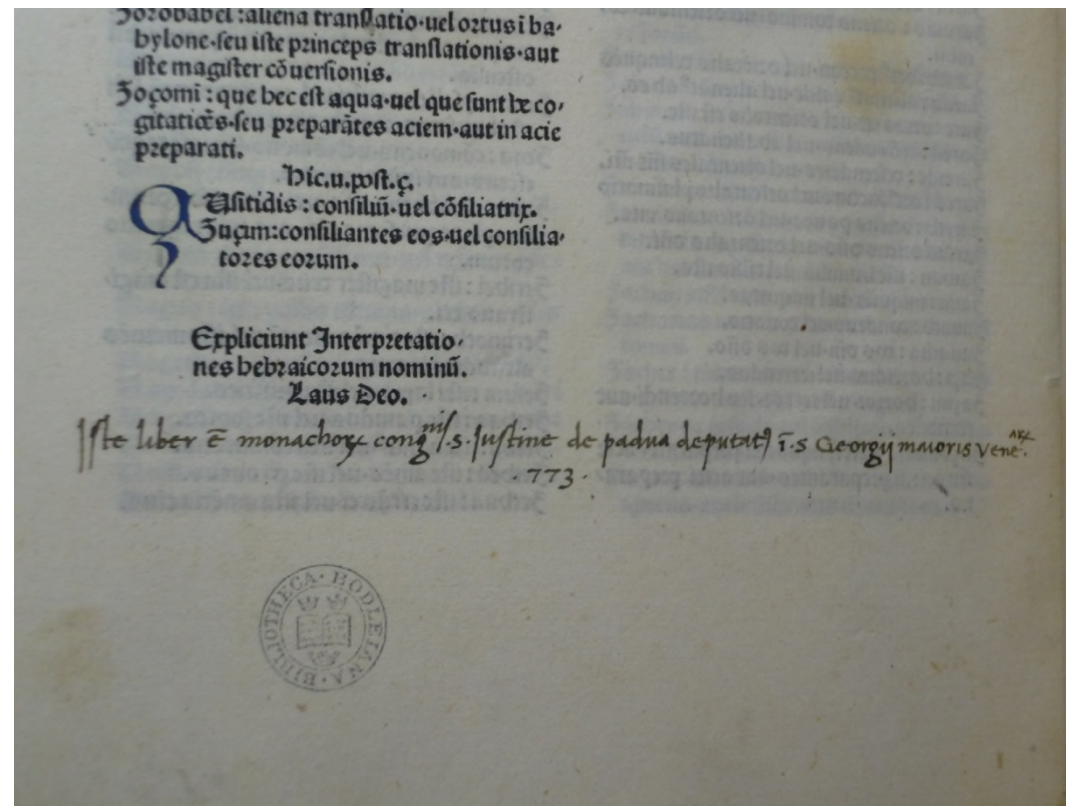 Zorobabel : aliena translatio·uel ortus ī ba-
bylone·seu iste princeps translationis·aut
iste magister cōuersionis.
Zoçomī : que hec est aqua·uel que sunt he co-
gitatiōes·seu preparātes aciem·aut in acie
preparati.
Hic.u.post.ç.
Usitidis : consiliū·uel cōsiliatrix.
Zuçim : consiliantes eos·uel consilia-
tores eorum.
Expliciunt Interpretatio-
nes hebraicorum nominū.
Laus Deo.
Iste liber ē monachoꝝ congnis .s. Justine de padua deputatꝰ ī .s. Georgij maioris Veneaꝝ.
·773·
BIBLIOTHECA·BODLEIANA·